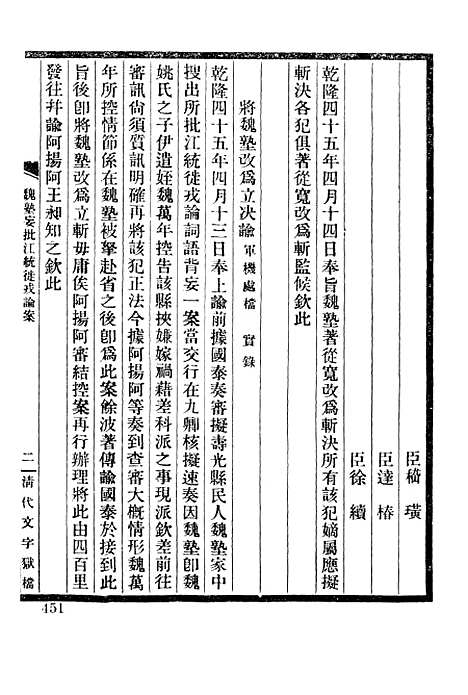 臣嵇　璜
臣達　椿
臣徐　績
乾隆四十五年四月十四日奉旨魏塾著從寬改爲斬決所有該犯嫡屬應擬
斬決各犯俱著從寬改爲斬監候欽此
將魏塾改爲立决諭　軍機處檔　實錄
乾隆四十五年四月十三日奉上諭前據國泰奏審擬壽光縣民人魏塾家中
搜出所批江統徙戎論詞語背妄一案當交行在九卿核擬速奏因魏塾卽魏
姚氏之子伊遣姪魏萬年控告該縣挾嫌嫁禍藉差科派之事現派欽差前往
審訊尙須質訊明確再將該犯正法今據阿揚阿等奏到查審大概情形魏萬
年所控情節係在魏塾被拏赴省之後卽爲此案餘波著傳諭國泰於接到此
旨後卽將魏塾改爲立斬毋庸俟阿揚阿審結控案再行辦理將此由四百里
發往幷諭阿揚阿王昶知之欽此
魏塾妄批江統徙戎論案
二　淸代文字獄檔
451